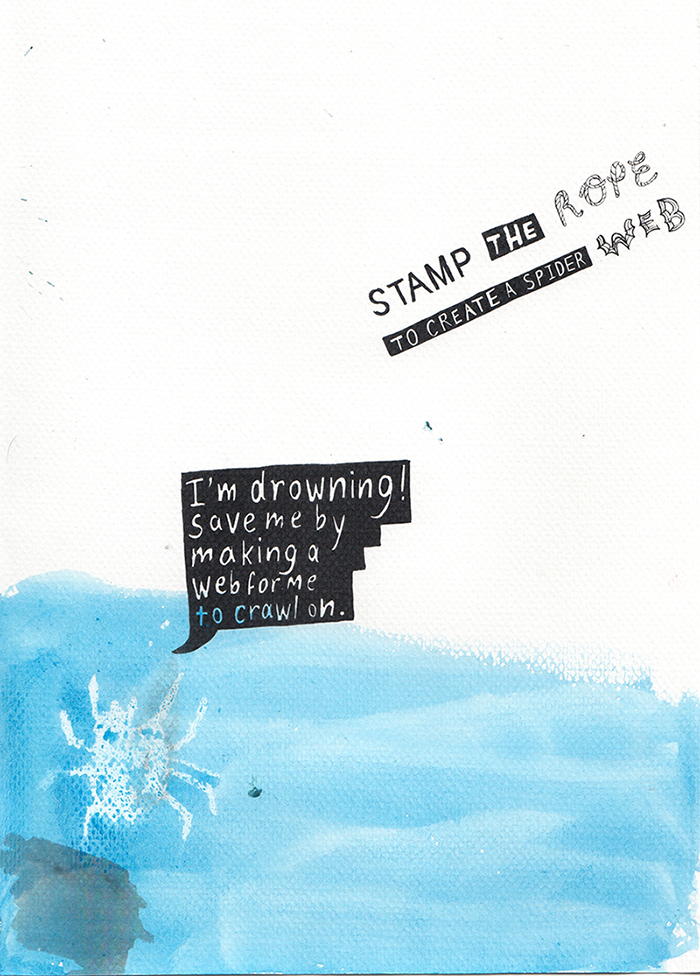 STAMP THE ROPE
TO CREATE A SPIDER WEB
I'm drowning!
Save me by
making a
web for me
to crawl on.